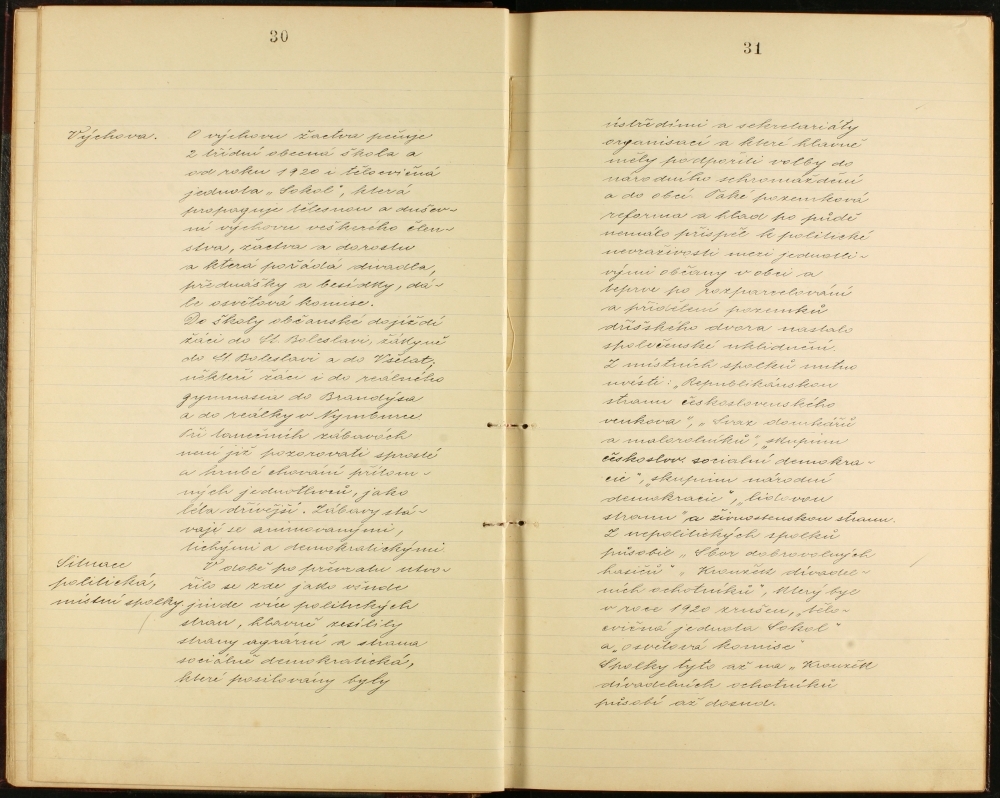 30
Výchova.
O výchovu žactva pečuje
2 třídní obecná škola a
od roku 1920 i tělocvičná
jednota „Sokol", která
propaguje tělesnou a dušev-
ní výchovu veškerého člen-
stva, žactva a dorostu
a která pořádá divadla,
přednášky a besídky, dá-
le osvětová komise.
Do školy občanské dojíždí
žáci do St. Boleslavi, žákyně
do St Boleslavi a do Všetat,
někteří žáci i do reálného
gymnasia do Brandýsa
a do reálky v Nymburce
Při tanečních zábavách
není již pozorovati sprosté
a hrubé chování přítom-
ných jednotlivců, jako
léta dřívější. Zábavy stá-
vají se animovanými,
tichými a demokratickými
Situace
politická,
místní spolky
V době po převratu utvo-
řilo se zde jako všude
jinde více politických
stran, hlavně zesílily
strany agrární a strana
sociálně demokratická,
které posilovány byly
31
ústředími a sekretariáty
organisací a které hlavně
měly podpořiti volby do
národního schromáždění
a do obcí. Také pozemková
reforma a hlad po půdě
nemálo přispěl k politické
nevraživosti mezi jednotli-
vými občany v obci a
teprve po rozparcelování
a přidělení pozemků
dříšského dvora nastalo
společenské uklidnění.
Z místních spolků nutno
uvésti: „Republikánskou
stranu československého
venkova", „Svaz domkářů
a malorolníků", „skupinu
českoslov. socialní demokra-
cie", „skupinu národní
demokracie", „lidovou
stranu" a živnostenskou stranu.
Z nepolitických spolků
působil „Sbor dobrovolných
hasičů" „Kroužek divadel-
ních ochotníků", který byl
v roce 1920 zrušen, „tělo-
cvičná jednota Sokol"
a „osvětová komise"
Spolky tyto až na „Kroužek
divadelních ochotníků
působí až dosud.